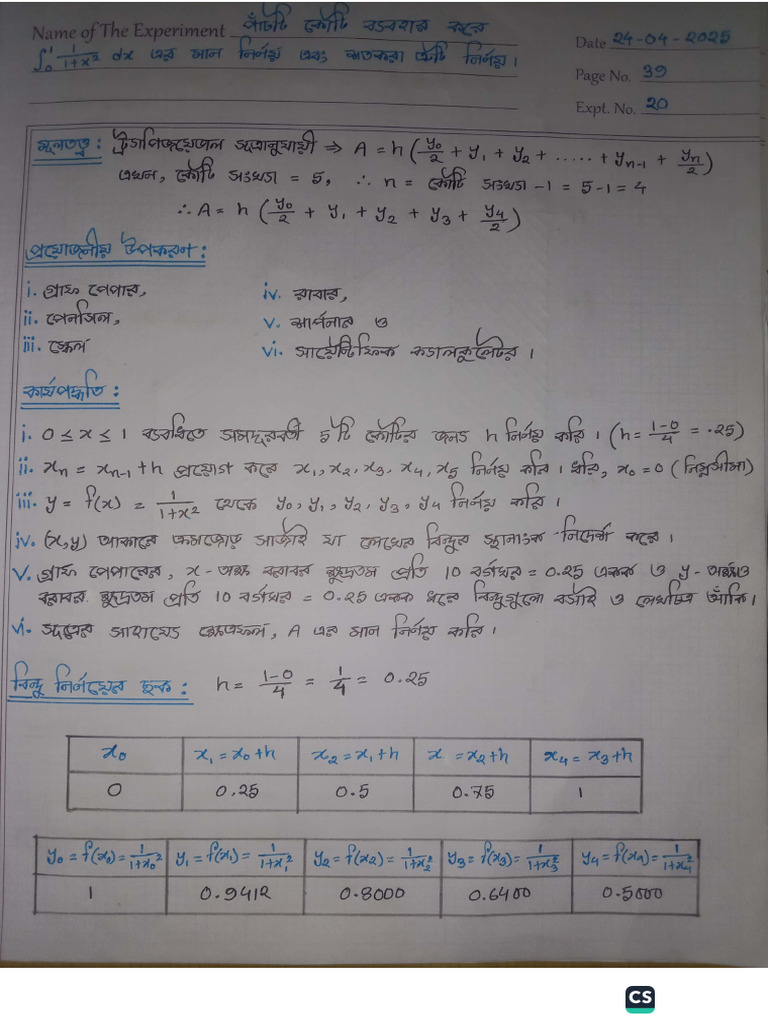 Name of The Experiment পাঁচটি কোটি ব্যবহার করে
∫₀¹ 1/(1+x²) dx এর মান নির্ণয় এবং শতকরা ত্রুটি নির্ণয়।
Date 24-04-2025
Page No. 39
Expt. No. 20
মূলতত্ত্ব: ট্রাপিজিয়ামের সূত্রানুযায়ী ⇒ A = h (y₀/2 + y₁ + y₂ + ..... + yₙ₋₁ + yₙ/2)
এখন, কোটি সংখ্যা = 5, ∴ n = কোটি সংখ্যা -1 = 5-1 = 4
∴ A = h (y₀/2 + y₁ + y₂ + y₃ + y₄/2)
প্রয়োজনীয় উপকরণ:
i. গ্রাফ পেপার,
ii. পেনসিল,
iii. স্কেল
iv. রাবার,
v. শার্পনার ও
vi. সায়েন্টিফিক ক্যালকুলেটর।
কার্যপদ্ধতি:
i. 0 ≤ x ≤ 1 ব্যবধিতে সমদূরবর্তী 5 টি কোটির জন্য h নির্ণয় করি। (h = (1-0)/4 = .25)
ii. xₙ = xₙ₋₁ + h প্রয়োগ করে x₁, x₂, x₃, x₄, x₅ নির্ণয় করি। ধরি, x₀ = 0 (নিম্নসীমা)
iii. y = f(x) = 1/(1+x²) থেকে y₀, y₁, y₂, y₃, y₄ নির্ণয় করি।
iv. (x,y) আকারে ক্রমজোড় সাজাই যা লেখের বিন্দুর স্থানাংক নির্দেশ করে।
v. গ্রাফ পেপারের, x - অক্ষ বরাবর ক্ষুদ্রতম প্রতি 10 বর্গঘর = 0.25 একক ও y - অক্ষ
বরাবর ক্ষুদ্রতম প্রতি 10 বর্গঘর = 0.25 একক ধরে বিন্দুগুলো বসাই ও লেখচিত্র আঁকি।
vi. সূত্রের সাহায্যে ক্ষেত্রফল, A এর মান নির্ণয় করি।
বিন্দু নির্ণয়ের ছক: h = (1-0)/4 = 1/4 = 0.25
x₀ x₁ = x₀+h x₂ = x₁+h x = x₂+h x₄ = x₃+h
0 0.25 0.5 0.75 1
y₀ = f(x₀) = 1/(1+x₀²) y₁ = f(x₁) = 1/(1+x₁²) y₂ = f(x₂) = 1/(1+x₂²) y₃ = f(x₃) = 1/(1+x₃²) y₄ = f(x₄) = 1/(1+x₄²)
1 0.9412 0.8000 0.6400 0.5000
CS